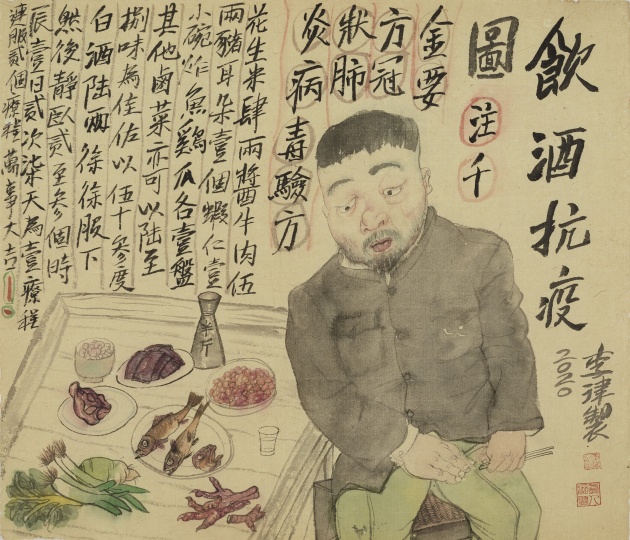 飲酒抗疫
李津製
2020
圖 注千
金要
方冠
狀肺
炎病毒驗方
花生米肆兩醬牛肉伍
兩豬耳朵壹個蝦仁壹
小碗炸魚雞爪各壹盤
其他鹵菜亦可以陸至
捌味為佳佐以伍十參度
白酒陸兩徐徐服下
然後靜臥貳至叁個時
辰壹日貳次柒天為壹療程
連服貳個療程萬事大吉
半斤